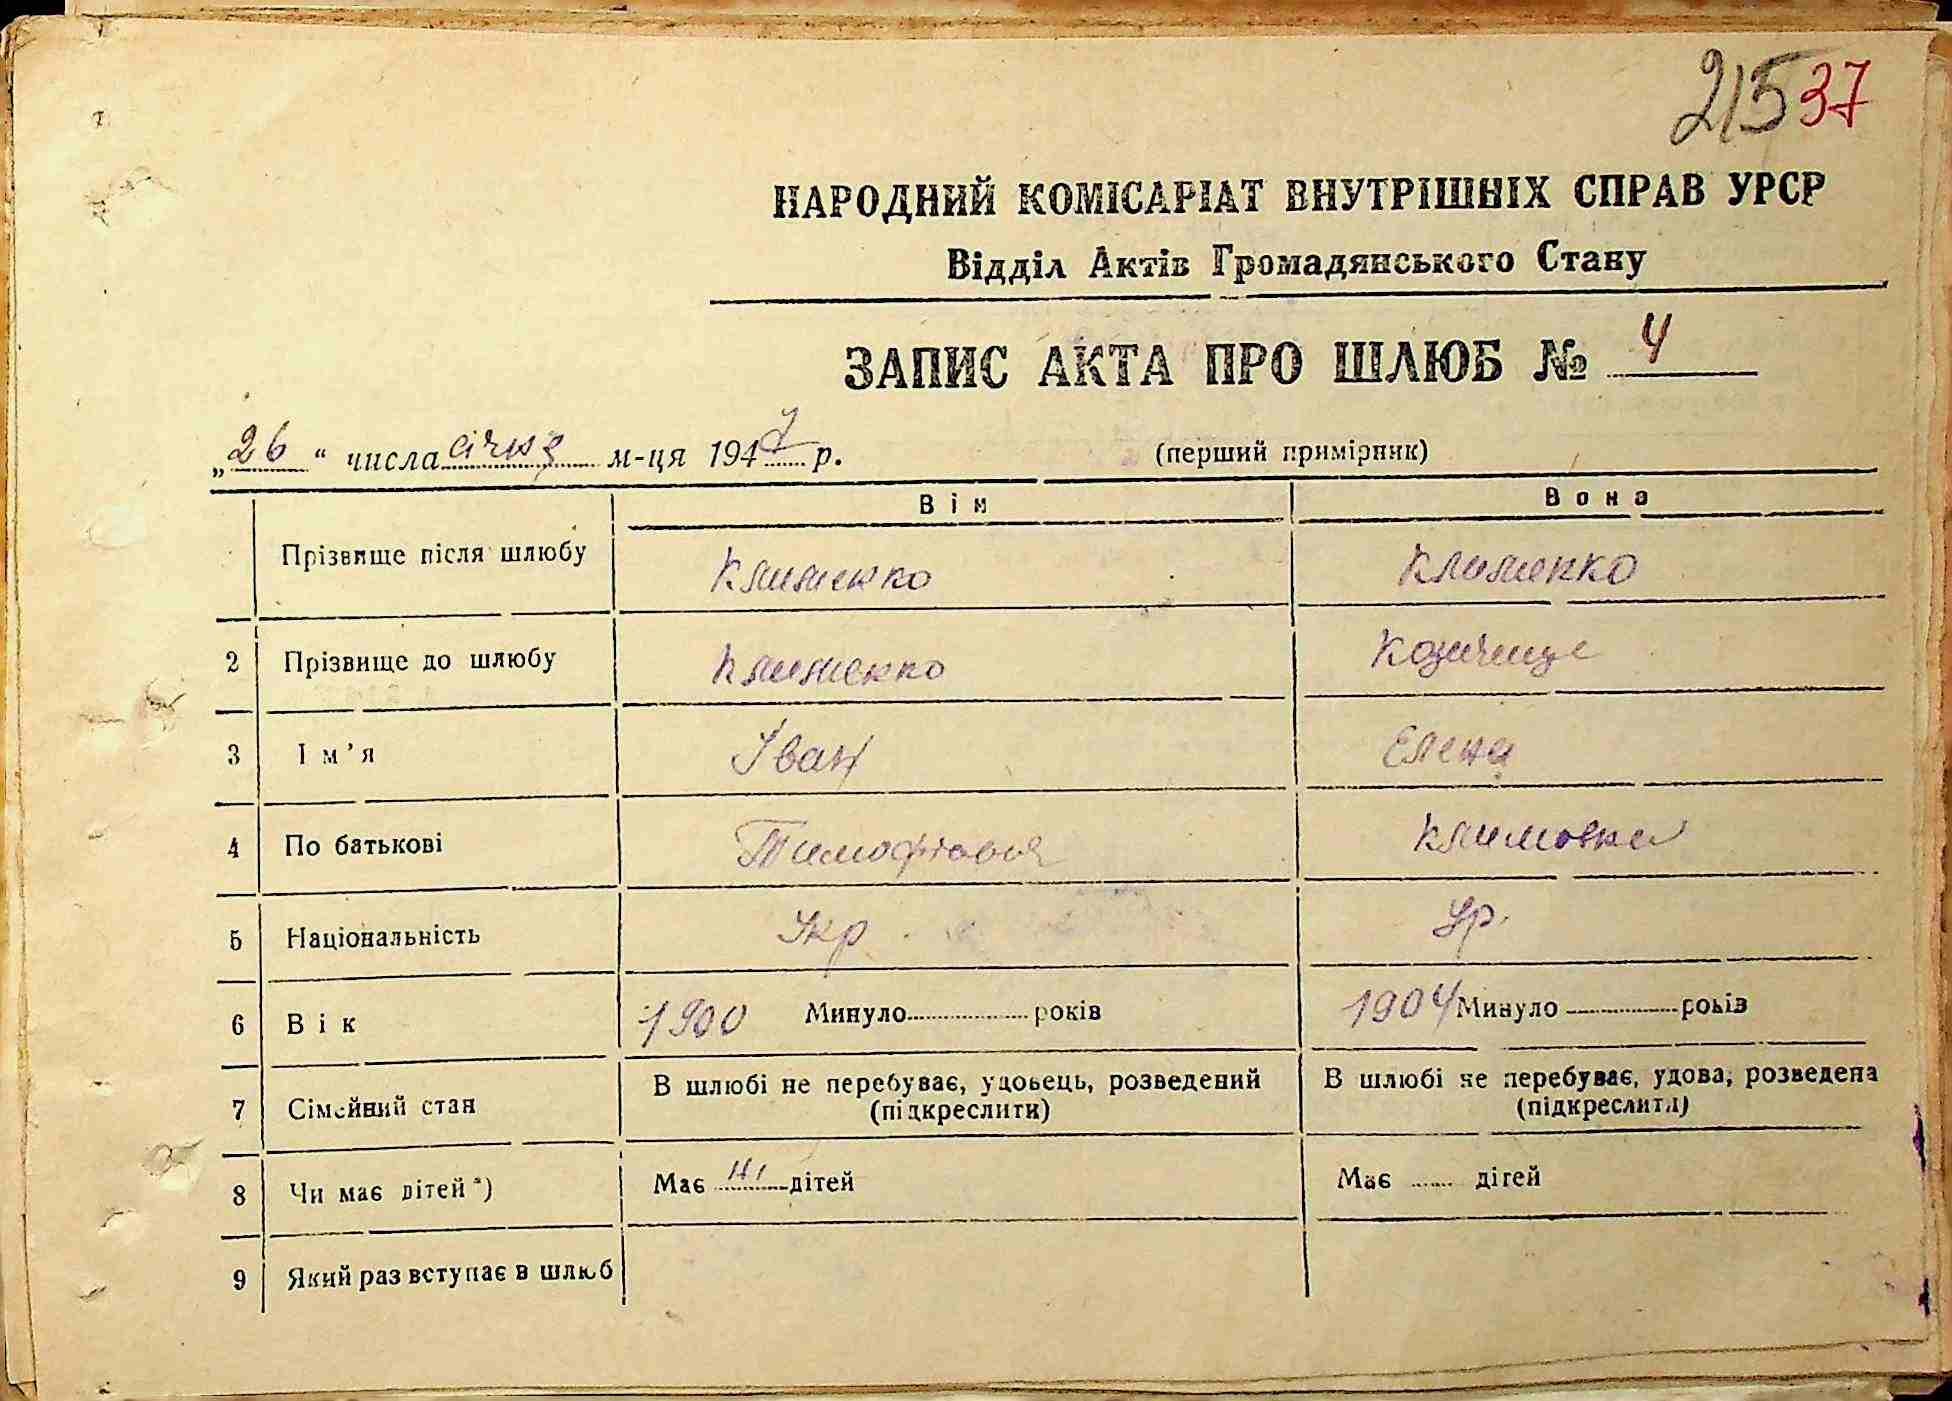 215 37
НАРОДНИЙ КОМІСАРІАТ ВНУТРІШНІХ СПРАВ УРСР
Відділ Актів Громадянського Стану
ЗАПИС АКТА ПРО ШЛЮБ № 4
„26“ числа січня м-ця 1947 р. (перший примірник)
Він Вона
Прізвище після шлюбу Клименко Клименко
2 Прізвище до шлюбу Клименко
3 Ім'я Іван Елена
4 По батькові Климовна
5 Національність Укр Ур.
6 Вік 1900 Минуло років 1904 Минуло років
7 Сімейний стан В шлюбі не перебуває, удовець, розведений (підкреслити) В шлюбі не перебуває, удова, розведена (підкреслити)
8 Чи має дітей*) Має ні дітей Має дітей
9 Який раз вступає в шлюб